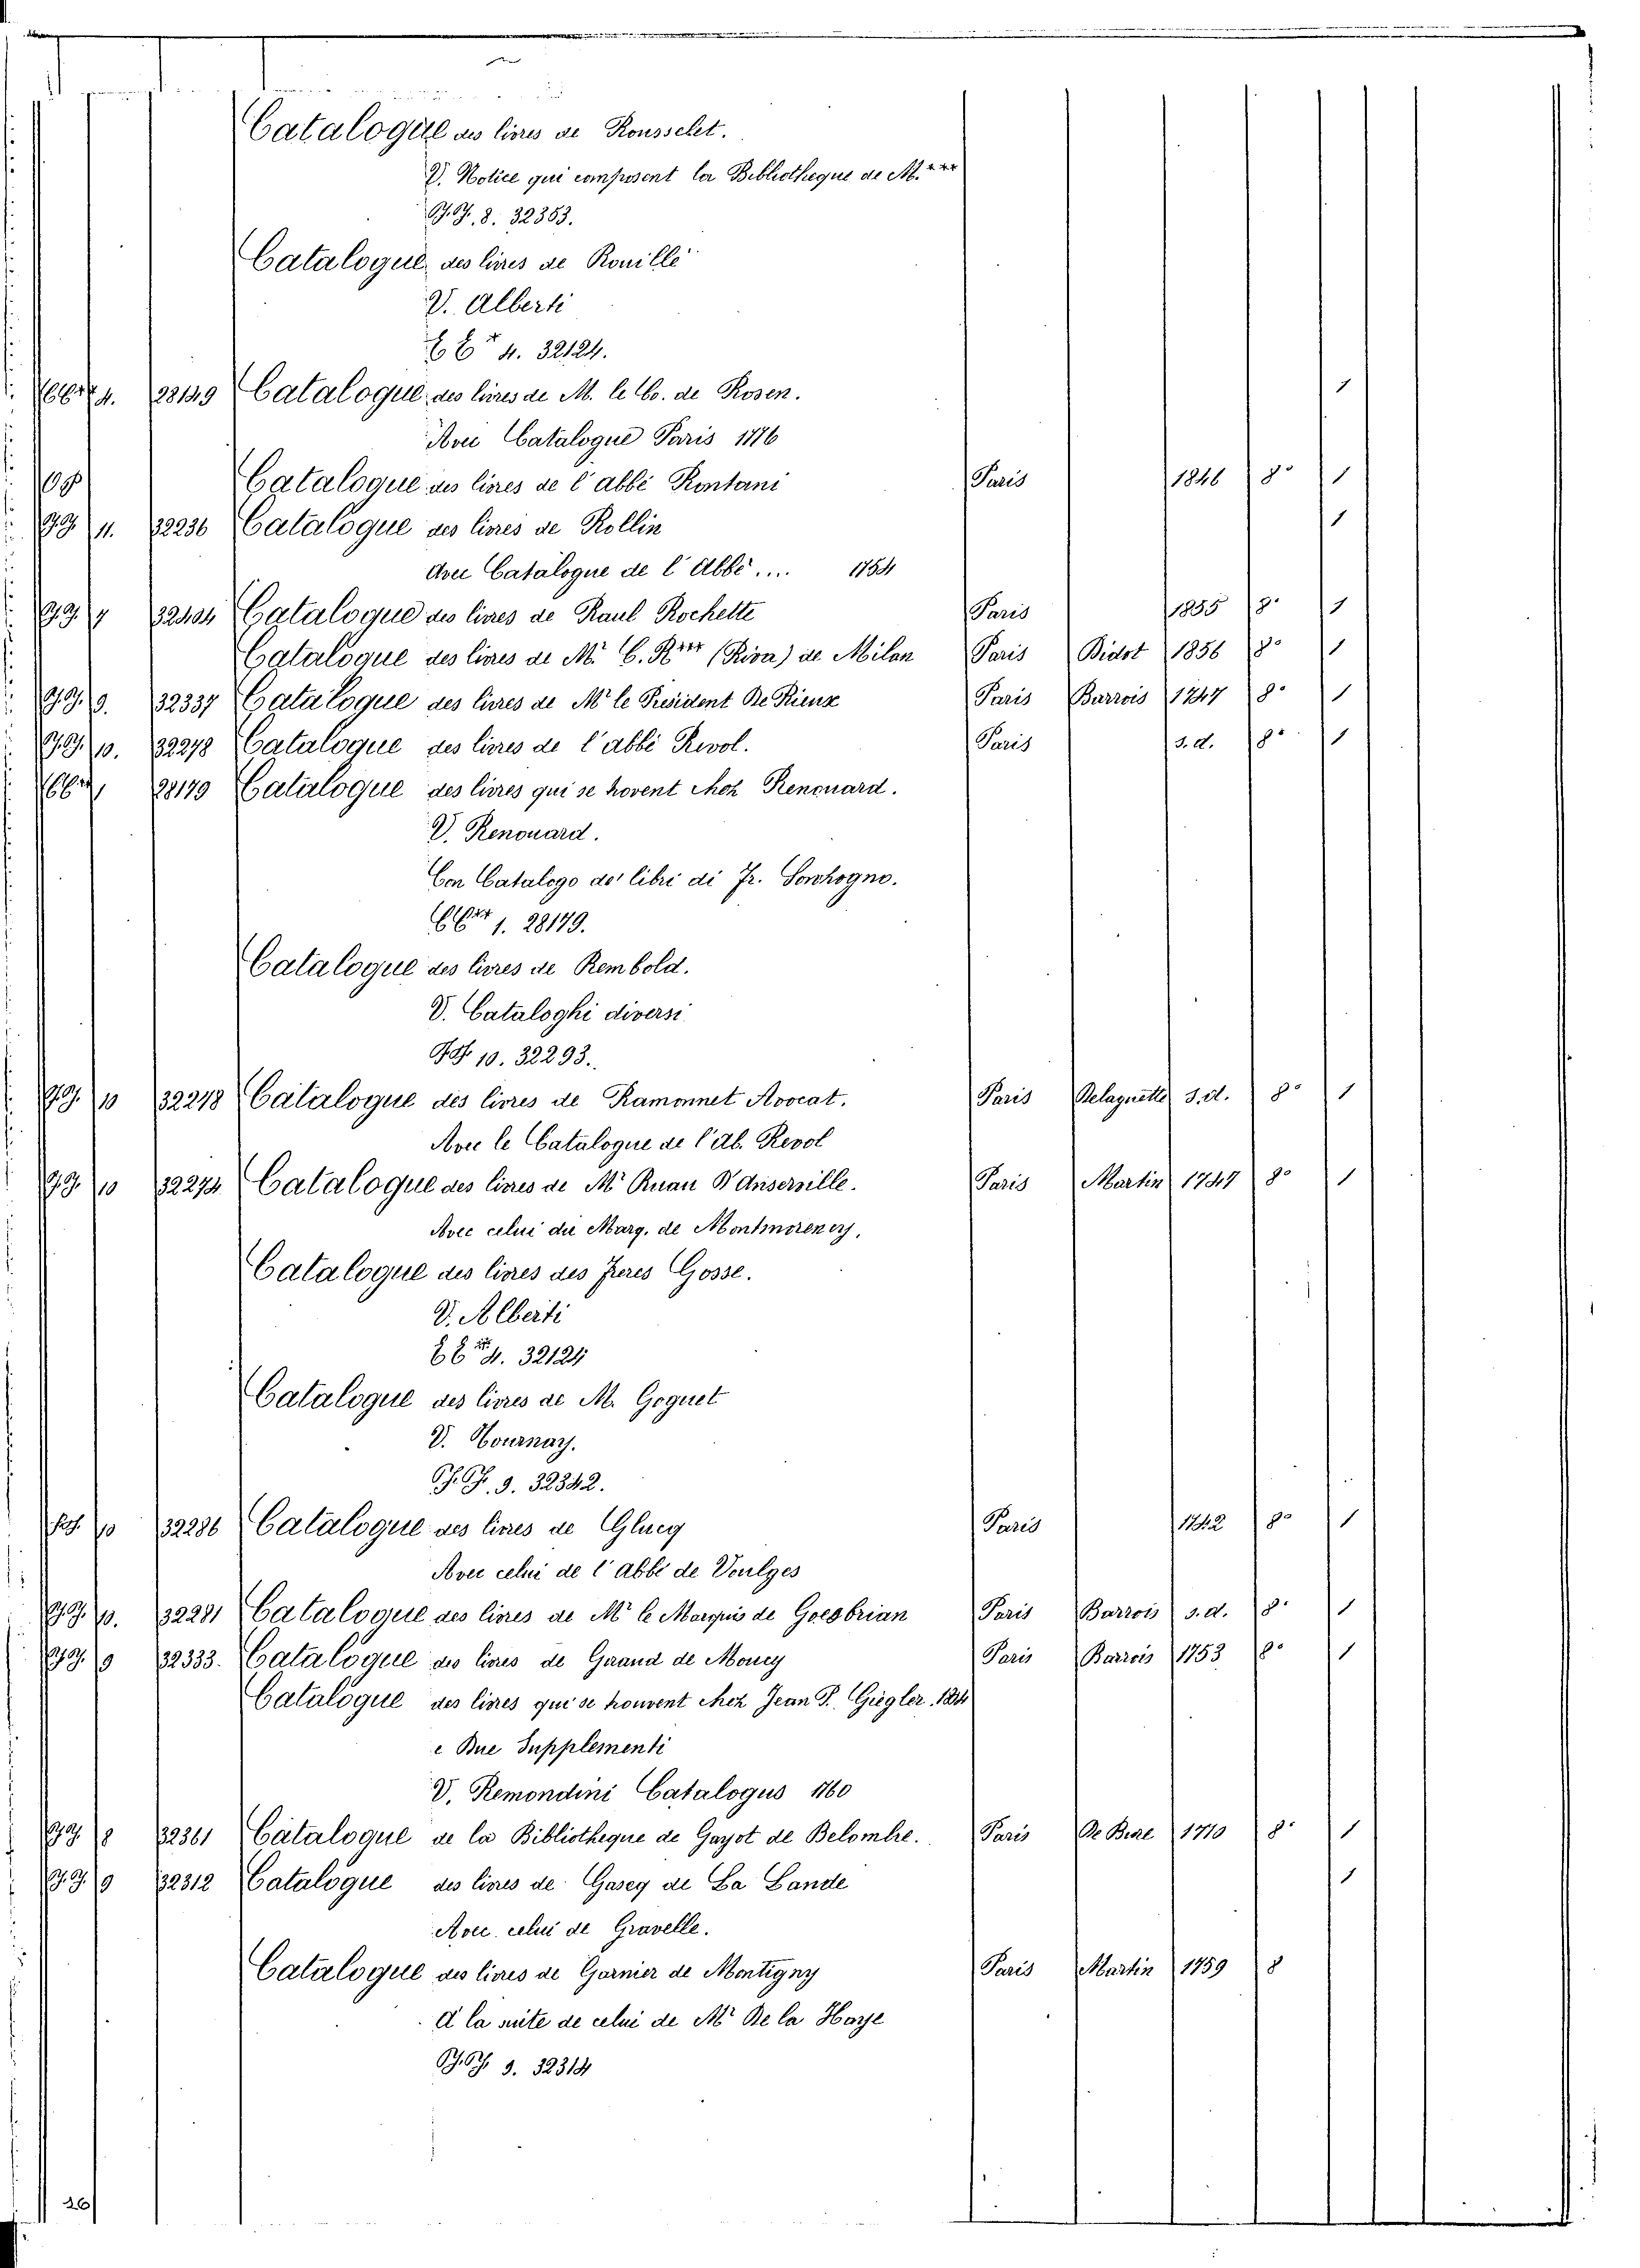 Catalogue des livres de Rousselet.
V. Notice qui composent la Bibliotheque de M. ***
8. 32353.
Catalogue des livres de Rouille
V. Alberti
4. 32124.
4. 28149 Catalogue des livres de M. le Co. de Rosen. 1
Avec Catalogue Paris 1776
Catalogue des livres de l'abbé Rontani Paris 1846 8° 1
11. 32236 Catalogue des livres de Rollin 1
Avec Catalogue de l'Abbé.... 1754
Catalogue des livres de Raul Rochette Paris 1855 8° 1
Catalogue des livres de Mr C. R*** (Riva) de Milan Paris Didot 1856 8° 1
9. 32337 Catalogue des livres de Mr le President De Rieux Paris Barrois 1747 8° 1
10. 32278 Catalogue des livres de l'abbé Revol. Paris s. d. 8° 1
28179 Catalogue des livres qui se trovent chez Renouard.
V. Renouard.
Con Catalogo de' libri di Fr. Sonzogno.
1. 28179.
Catalogue des livres de Rembold.
V. Cataloghi diversi
10. 32293.
10 32278 Catalogue des livres de Ramonnet Avocat. Paris Delaguette s. d. 8° 1
Avec le Catalogue de l'Ab. Revol
10 32274 Catalogue des livres de Mr Ruau D'Anserville. Paris Martin 1747 8° 1
Avec celui du Marq. de Montmorency.
Catalogue des livres des freres Gosse.
V. Alberti
4. 32124
Catalogue des livres de M. Goguet
V. Hournay.
9. 32342.
10 32286 Catalogue des livres de Glucy Paris 1742 8° 1
Avec celui de l'Abbé de Voulges
10. 32281 Catalogue des livres de Mr le Marquis de Goesbrian Paris Barrois s. d. 8° 1
9 32333. Catalogue des livres de Giraud de Moucy Paris Barrois 1753 8° 1
Catalogue des livres qui se trouvent chez Jean P. Giegler. 1814
e Due Supplementi
V. Remondini Catalogus 1760
8 32361 Catalogue de la Bibliotheque de Gayot de Belombre. Paris De Bure 1770 8° 1
9 32312 Catalogue des livres de Gascq de La Lande 1
Avec celui de Gravelle.
Catalogue des livres de Garnier de Montigny Paris Martin 1759 8
à la suite de celui de Mr De la Haye
9. 32314
26